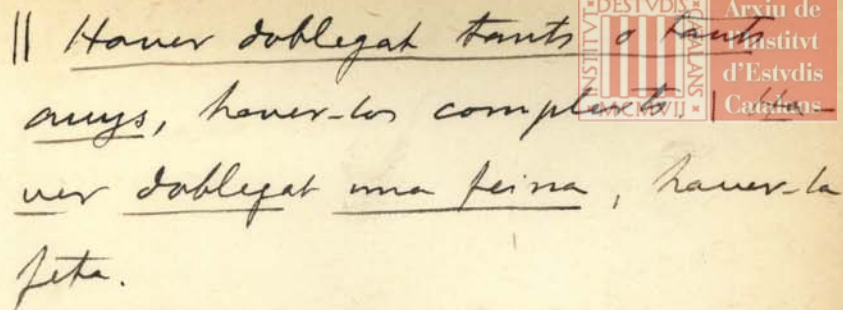 || Haver doblegat tants o tants
anys, haver-los complerts. | Ha-
ver doblegat una feina, haver-la
feta.
INSTITVT D'ESTVDIS CATALANS
MCMVII
Arxiu de
l'Institvt
d'Estvdis
Catalans